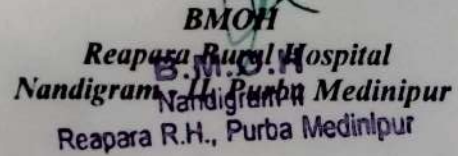 BMOH
Reapara Rural Hospital
B.M.O.H
Nandigram-II, Purba Medinipur
Nandigram-II
Reapara R.H., Purba Medinipur